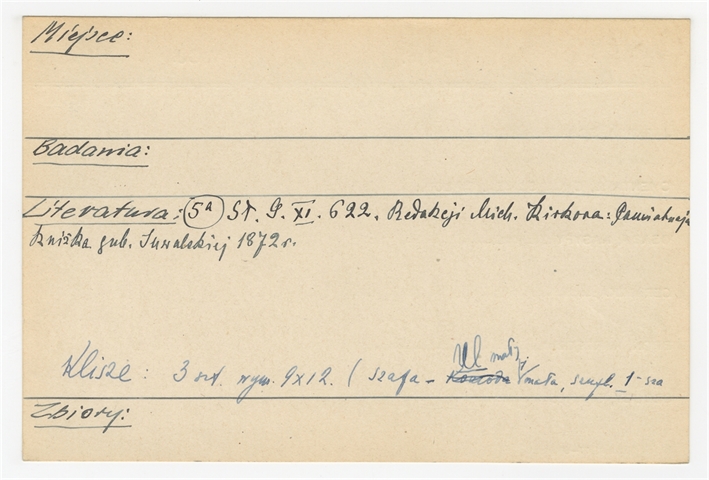 Miejsce:
Badania:
Literatura: 5a St. G. XI. 622. Redakcji Mich. Kirkora: Pamiatnaja
Kniżka gub. Suwalskiej 1872 r.
małż.
Klisze: 3 szt. wym. 9x12. (szafa - Komoda mała, szufl. 1-sza
Zbiory: